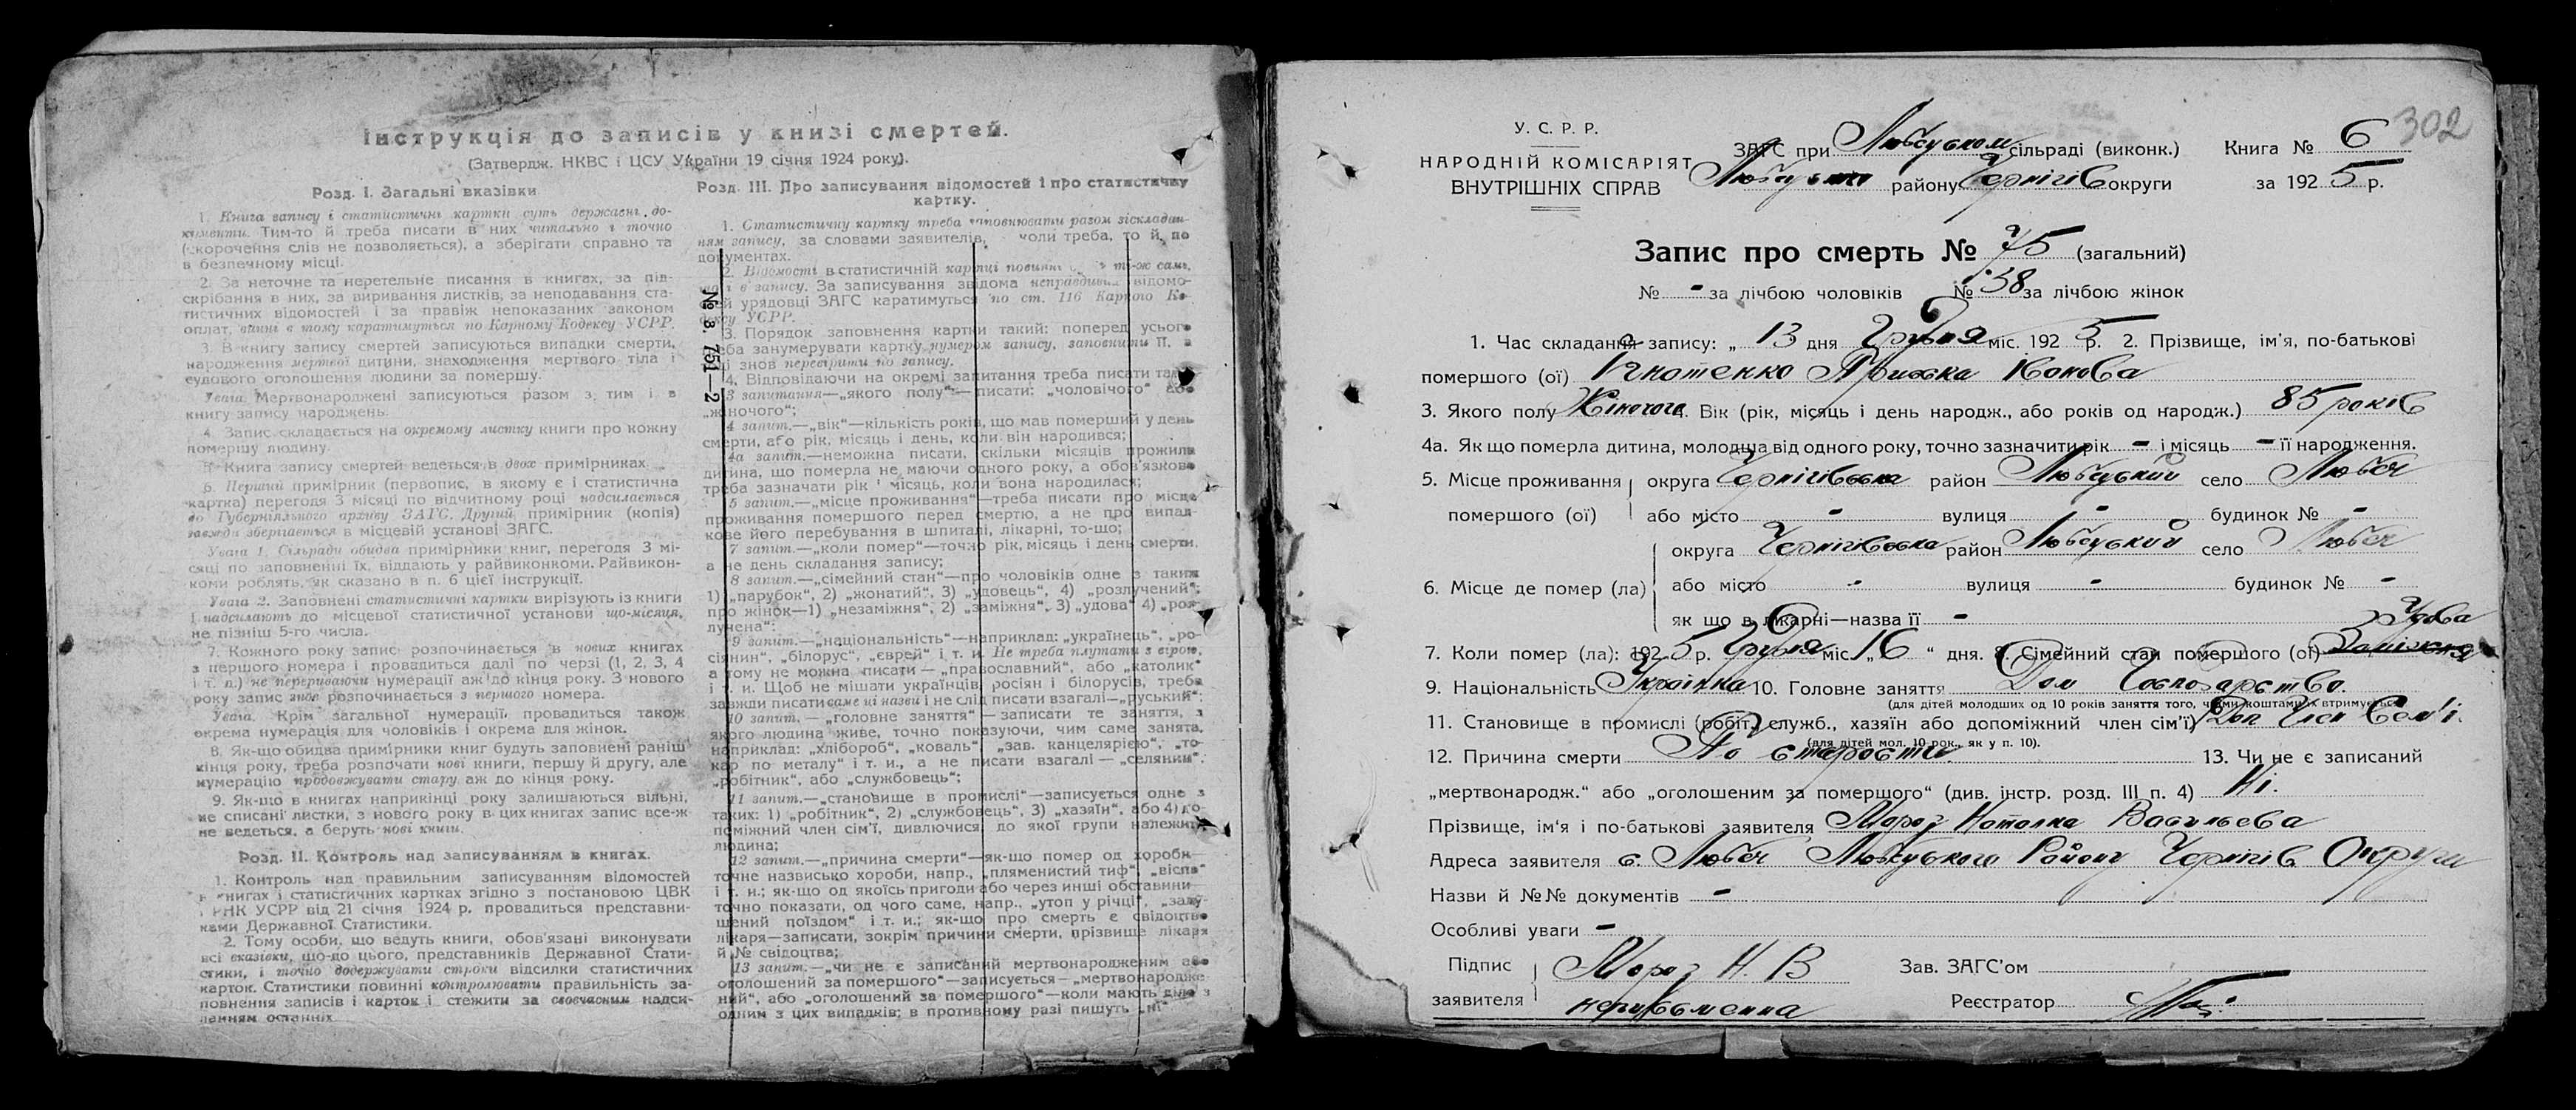 Інструкція до записів у книзі смертей.
(Затвердж. НКВС і ЦСУ України 19 січня 1924 року).
Розд. I. Загальні вказівки
1. Книга запису і статистичні картки суть державні до-
кументи. Тим-то й треба писати в них читально і точно
(скорочення слів не дозволяється), а зберігати справно та
в безпечному місці.
2. За неточне та неретельне писання в книгах, за під-
скрібання в них, за виривання листків, за неподавання ста-
тистичних відомостей і за правіж непоказаних законом
оплат, винні в тому каратимуться по Карному Кодексу УСРР.
3. В книгу запису смертей записуються випадки смерти,
народження мертвої дитини, знаходження мертвого тіла і
судового оголошення людини за помершу.
Увага. Мертвонароджені записуються разом з тим і в
книгу запису народжень.
4. Запис складається на окремому листку книги про кожну
помершу людину.
5. Книга запису смертей ведеться в двох примірниках.
6. Перший примірник (первопис, в якому є і статистична
картка) перегодя 3 місяці по відчитному році надсилається
до Губерніяльного архиву ЗАГС. Другий примірник (копія)
завжди зберігається в місцевій установі ЗАГС.
Увага 1. Сільради обидва примірники книг, перегодя 3 мі-
сяці по заповненні їх, віддають у райвиконкоми. Райвикон-
коми роблять, як сказано в п. 6 цієї інструкції.
Увага 2. Заповнені статистичні картки вирізують із книги
і надсилають до місцевої статистичної установи що-місяця,
не пізніш 5-го числа.
7. Кожного року запис розпочинається в нових книгах
з першого номера і провадиться далі по черзі (1, 2, 3, 4
і т. д.) не перериваючи нумерації аж до кінця року. З нового
року запис знов розпочинається з першого номера.
Увага. Крім загальної нумерації, провадиться також
окрема нумерація для чоловіків і окрема для жінок.
8. Як-що обидва примірники книг будуть заповнені раніш
кінця року, треба розпочати нові книги, першу й другу, але
нумерацію продовжувати стару аж до кінця року.
9. Як-що в книгах наприкінці року залишаються вільні,
не списані листки, з нового року в цих книгах запис все-ж
не ведеться, а беруть нові книги.
Розд. II. Контроль над записуванням в книгах.
1. Контроль над правильним записуванням відомостей
в книгах і статистичних картках згідно з постановою ЦВК
і РНК УСРР від 21 січня 1924 р. провадиться представни-
ками Державної Статистики.
2. Тому особи, що ведуть книги, обов'язані виконувати
всі вказівки, що-до цього, представників Державної Стати-
стики, і точно додержувати строки відсилки статистичних
карток. Статистики повинні контролювати правильність за-
повнення записів і карток і стежити за своєчасним надси-
ланням останніх
№ З. 751—2
Розд. III. Про записування відомостей і про статистичну
картку.
1. Статистичну картку треба заповнювати разом зіскладан-
ням запису, за словами заявителів, коли треба, то й по
документах.
2. Відомості в статистичній картці повинні бути ті-ж самі,
що і в запису. За записування звідома неправдивих відомо-
стей урядовці ЗАГС каратимуться по ст. 116 Карного Ко-
дексу УСРР.
3. Порядок заповнення картки такий: поперед усього
треба занумерувати картку нумером запису, заповнити п. п.
і знов перевірити по запису.
4. Відповідаючи на окремі запитання треба писати так:
3 запитання—„якого полу“—писати: „чоловічого“ або
„жіночого“;
4 запит.—„вік“—кількість років, що мав померший у день
смерти, або рік, місяць і день, коли він народився;
4а запит.—неможна писати, скільки місяців прожила
дитина, що померла не маючи одного року, а обов'язково
треба зазначати рік і місяць, коли вона народилася;
5 запит.—„місце проживання“—треба писати про місце
проживання помершого перед смертю, а не про випад-
кове його перебування в шпиталі, лікарні, то-що;
7 запит.—„коли помер“—точно рік, місяць і день смерти,
а не день складання запису;
8 запит.—„сімейний стан“—про чоловіків одне з таких
1) „парубок“, 2) „жонатий“, 3) „удовець“, 4) „розлучений“;
про жінок—1) „незаміжня“, 2) „заміжня“, 3) „удова“ 4) „роз-
лучена“;
9 запит.—„національність“—наприклад: „українець“, „ро-
сіянин“, „білорус“, „єврей“ і т. и. Не треба плутати з вірою,
а тому не можна писати—„православний“, або „католик“
і т. и. Щоб не мішати українців, росіян і білорусів, треба
завжди писати саме ці назви і не слід писати взагалі—„руський“;
10 запит.—„головне заняття“—записати те заняття, з
якого людина живе, точно показуючи, чим саме занята,
наприклад: „хлібороб“, „коваль“, „зав. канцелярією“, „то-
кар по металу“ і т. и., а не писати взагалі—„селянин“,
„робітник“, або „службовець“;
11 запит.—„становище в промислі“—записується одне з
таких: 1) „робітник“, 2) „службовець“, 3) „хазяїн“, або 4) до-
поміжний член сім'ї, дивлючися до якої групи належить
людина;
12 запит.—„причина смерти“—як-що помер од хороби—
точне назвисько хороби, напр., „пляменистий тиф“, „віспа“
і т. и.; як-що од якоїсь пригоди або через инші обставини—
точно показати, од чого саме, напр., „утоп у річці“, „заду-
шений поїздом“ і т. и.; як-що про смерть є свідоцтво
лікаря—записати, зокрім причини смерти, прізвище лікаря
й № свідоцтва;
13 запит.—„чи не є записаний мертвонародженим або
оголошений за помершого“—записується—„мертвонародже-
ний“, або „оголошений за помершого“—коли мають діло з
одним з цих випадків; в противному разі пишуть „ні“
302
У. С. Р. Р.
НАРОДНІЙ КОМІСАРІЯТ
ВНУТРІШНІХ СПРАВ
ЗАГС при Любецьком сільраді (виконк.) Книга № 6
Любецького району Чернігів округи за 1925 р.
Запис про смерть № 75 (загальний)
№ - за лічбою чоловіків № 38 за лічбою жінок
1. Час складання запису: „ 13 дня Грудня міс. 1925 р. 2. Прізвище, ім'я, по-батькові
помершого (ої) Ігнотенко Приська Іванова
3. Якого полу Жіночого. Вік (рік, місяць і день народж., або років од народж.) 85 років
4а. Як що померла дитина, молодша від одного року, точно зазначити рік - і місяць - її народження.
5. Місце проживання округа Чернігівська район Любецький село Любеч
помершого (ої) або місто - вулиця - будинок № -
округа Чернігівська район Любецький село Любеч
6. Місце де помер (ла) або місто - вулиця - будинок № -
як що в лікарні—назва її -
Удова
7. Коли помер (ла): 1925 р. Грудня міс. „16“ дня. 8. Сімейний стан помершого (ої) Заміжня
9. Національність Українка 10. Головне заняття Дом Госпозарство.
(для дітей молодших од 10 років заняття того, чиїми коштами їх втримується)
11. Становище в промислі (робіт., служб., хазяїн або допоміжний член сім'ї) Доп Член Сем'і.
(для дітей мол. 10 рок., як у п. 10).
12. Причина смерти По старости. 13. Чи не є записаний
„мертвонародж.“ або „оголошеним за помершого“ (див. інстр. розд. III п. 4) Ні.
Прізвище, ім'я і по-батькові заявителя Мороз Наталка Васильева
Адреса заявителя с. Любеч Любецького Району Чернігів Округи
Назви й №№ документів -
Особливі уваги -
Підпис Мороз Н. В Зав. ЗАГС'ом
заявителя неписьменна Реєстратор